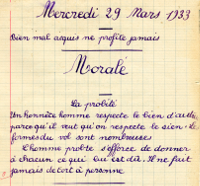 Mercredi 29 Mars 1933
Bien mal acquis ne profite jamais
Morale
La probité
Un honnête homme respecte le bien d'autrui
parce qu'il veut qu'on respecte le sien. Les
formes du vol sont nombreuses
L'homme probe s'efforce de donner
à chacun ce qui lui est dû. Il ne fait
jamais de tort à personne